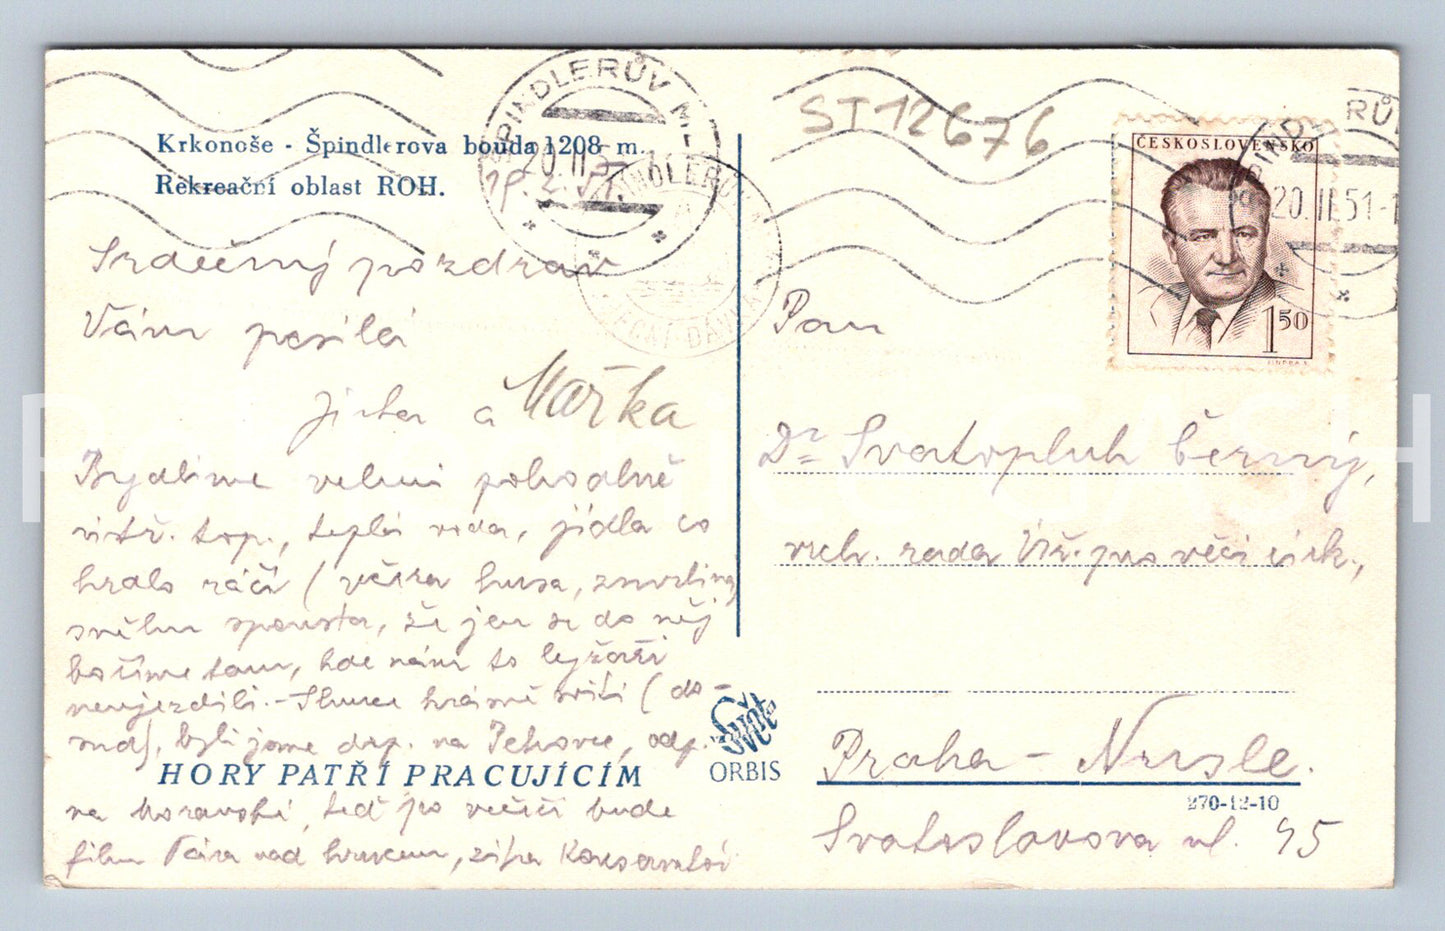 Krkonoše - Špindlerova bouda 1208 m.
Rekreační oblast ROH.
ŠPINDLERŮV ML
20. II 51
ST12676
ČESKOSLOVENSKO
1 50
ŠPINDLERŮV
20. II 51-1
Srdečný pozdrav
Vám posílá
Jirka a Mařka
Bydlíme velmi pohodlně
ústř. top., teplá voda, jídla co
hrdlo ráčí (včera husa, zmrzlina)
sněhu spousta, že jen se do něj
boříme tam, kde nám to lyžaři
neujezdili. - Slunce krásně svítí (do-
sud), byli jsme dop. na Petrovce, odp.
na Moravské, teď po večeři bude
film Pára nad hrncem, zítra Konservatoř
HORY PATŘÍ PRACUJÍCÍM
Svět
ORBIS
Pan
Dr Svatopluk Černý,
vrch. rada Úř. pro věci círk.,
Praha - Nusle.
270-12-10
Svatoslavova ul. 45
Pohlednice CASH